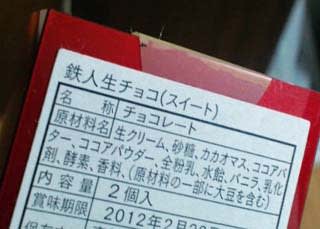 鉄人生チョコ(スイート)
名 称 チョコレート
原材料名 生クリーム、砂糖、カカオマス、ココアバ
ター、ココアパウダー、全粉乳、水飴、バニラ、乳化
剤、酵素、香料、(原材料の一部に大豆を含む)
内 容 量 2個入
賞味期限 2012年2月
保存方